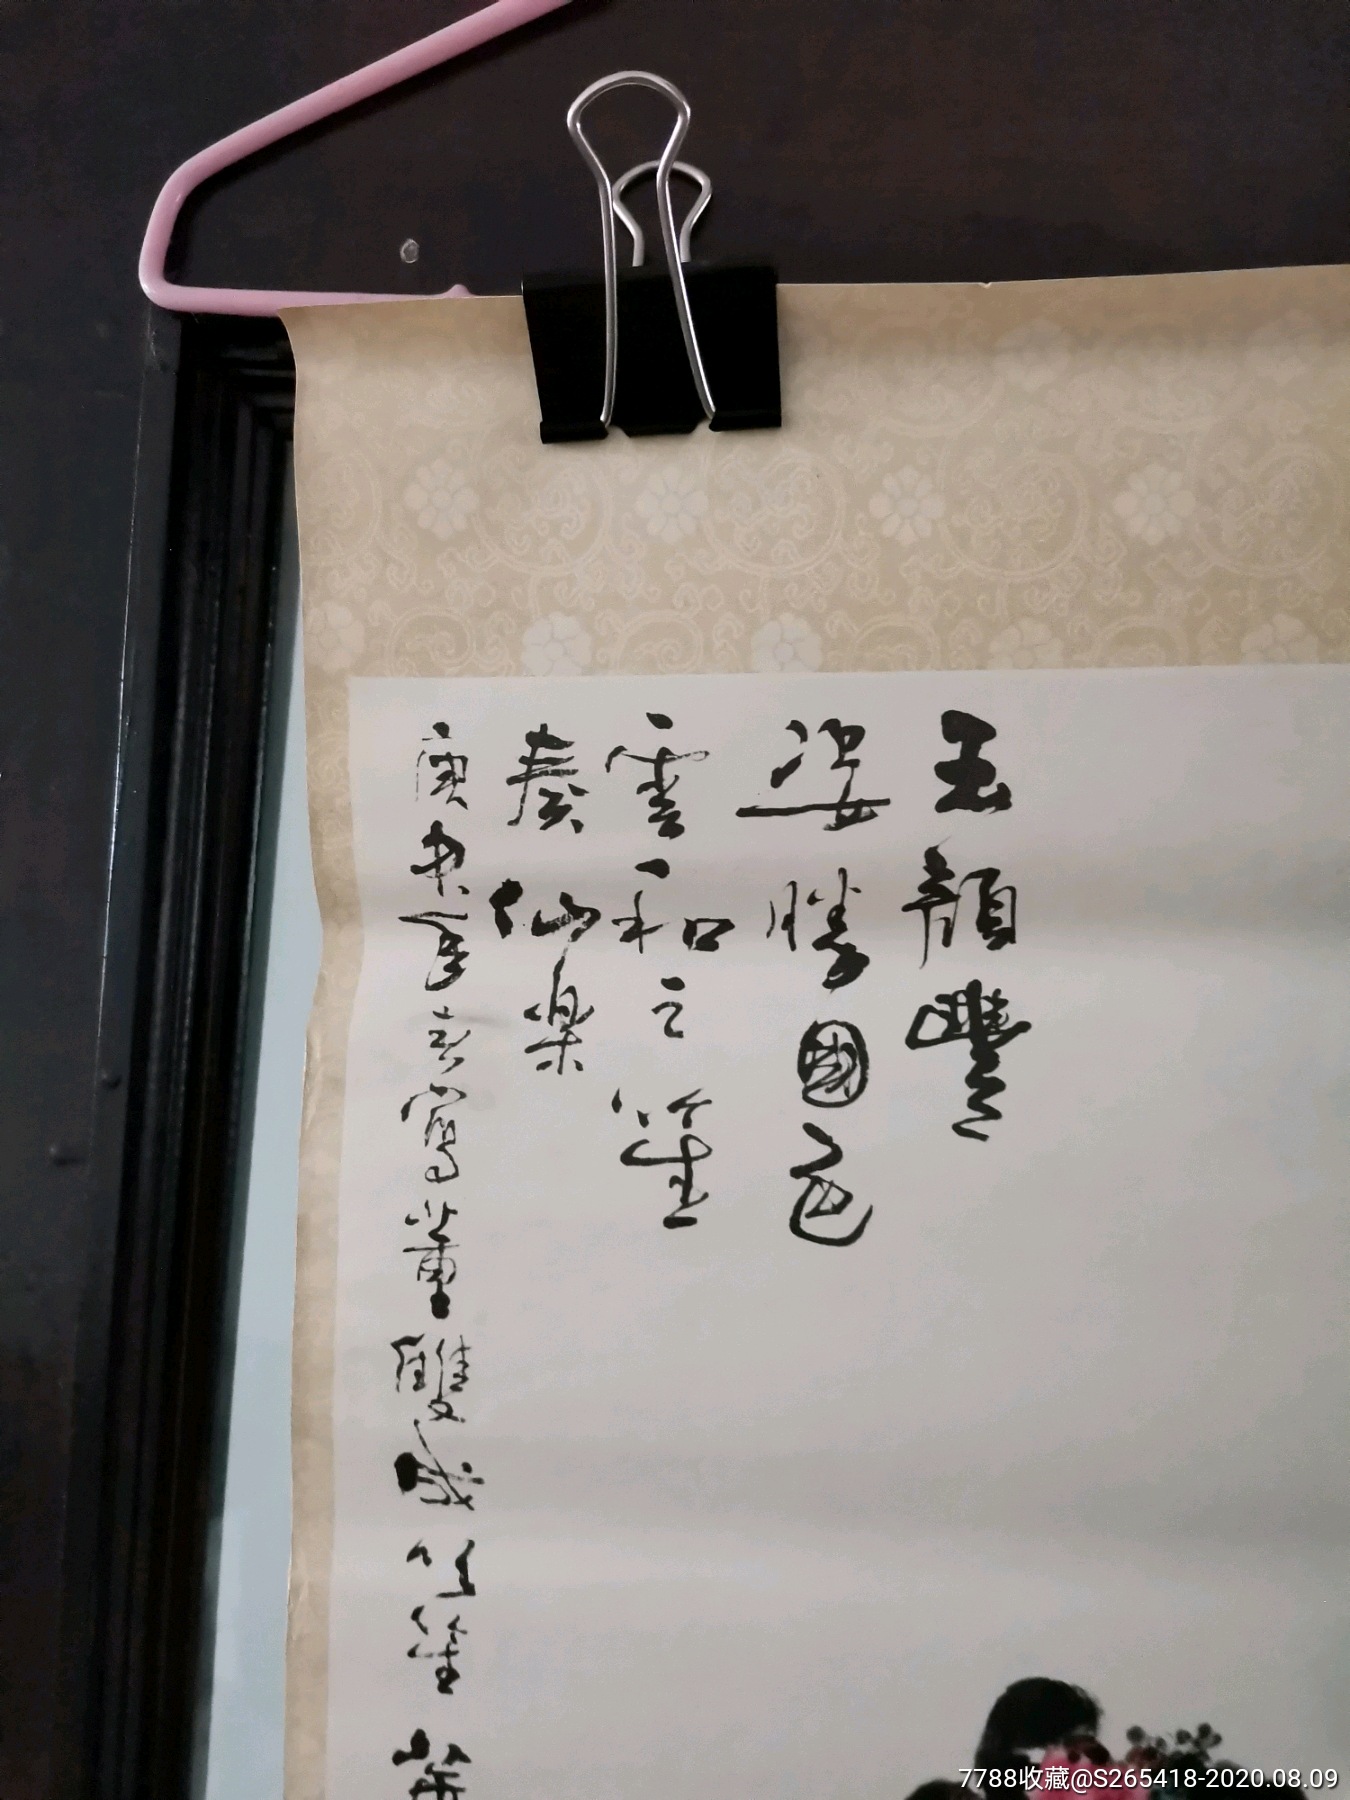 玉顏豐
姿勝國色
雲和之笙
奏仙樂
庚午年春寫董雙成吹笙
7788收藏@S265418-2020.08.09